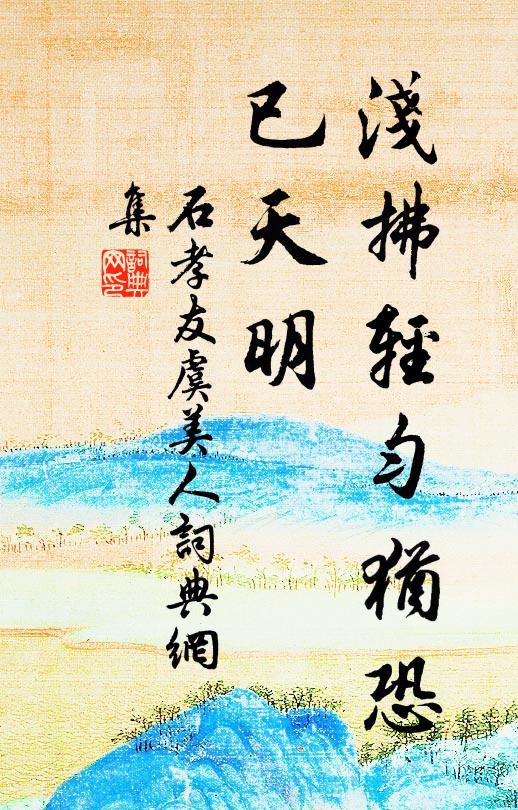 淺拂輕勻猶恐
已天明
石孝友虞美人詞典網
集
詞典
网印